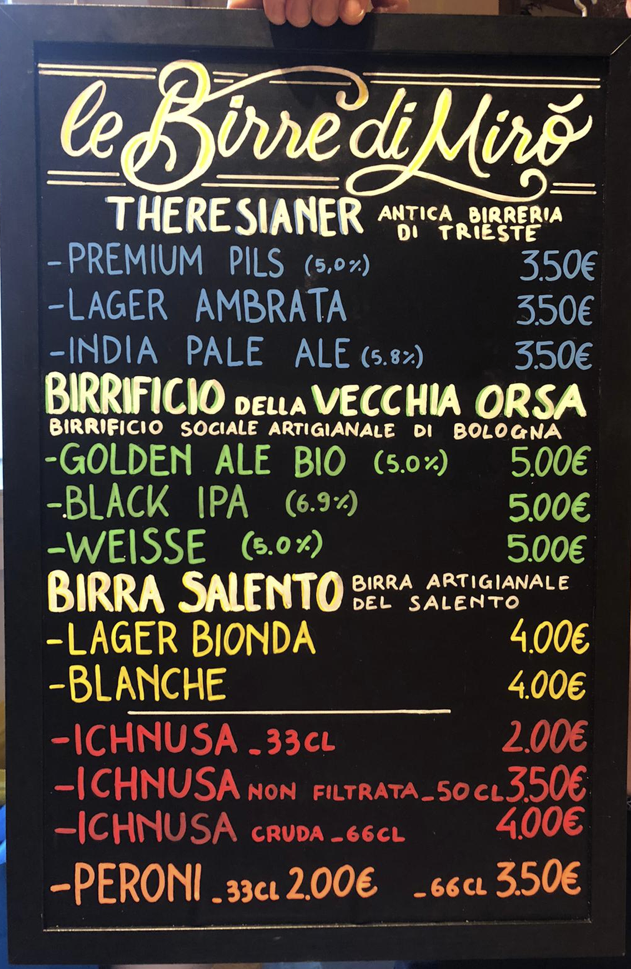 le Birre di Mirò
THERESIANER ANTICA BIRRERIA
DI TRIESTE
-PREMIUM PILS (5,0%) 3.50€
-LAGER AMBRATA 3.50€
-INDIA PALE ALE (5.8%) 3.50€
BIRRIFICIO DELLA VECCHIA ORSA
BIRRIFICIO SOCIALE ARTIGIANALE DI BOLOGNA
-GOLDEN ALE BIO (5.0%) 5.00€
-BLACK IPA (6.9%) 5.00€
-WEISSE (5.0%) 5.00€
BIRRA SALENTO BIRRA ARTIGIANALE
DEL SALENTO
-LAGER BIONDA 4.00€
-BLANCHE 4.00€
-ICHNUSA _33CL 2.00€
-ICHNUSA NON FILTRATA_50CL 3.50€
-ICHNUSA CRUDA _66CL 4.00€
-PERONI _33CL 2.00€ _66CL 3.50€